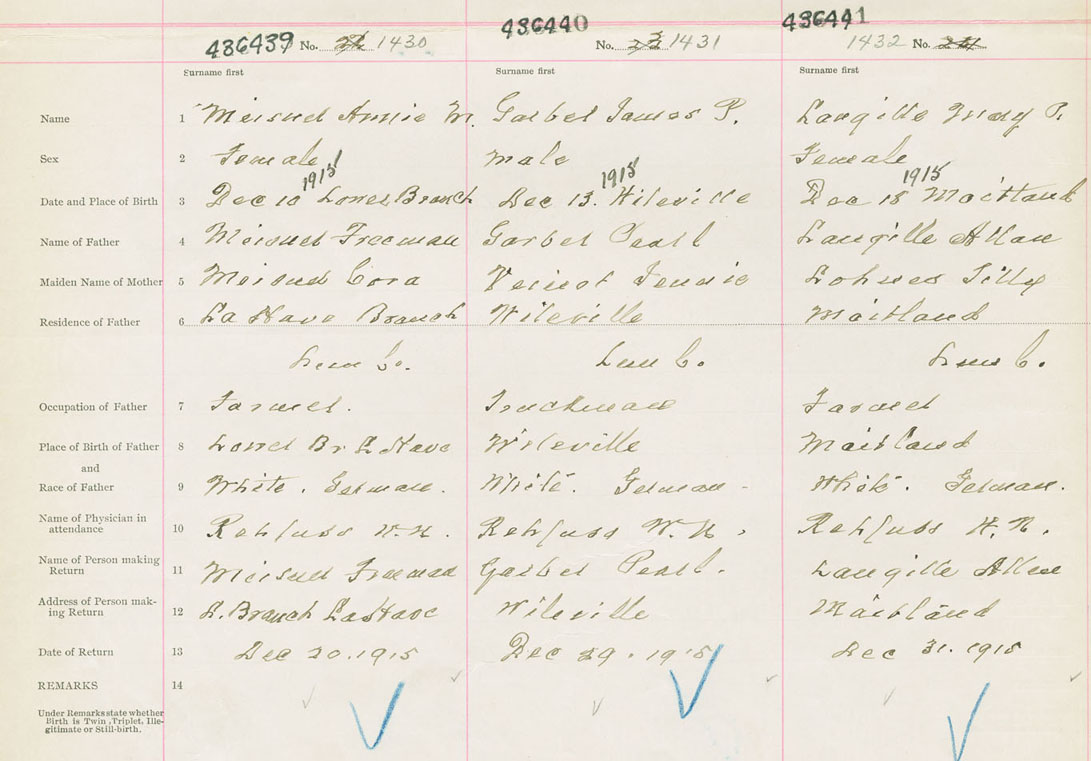 436439 No. 1430 436440 No. 1431 436441 1432 No.
Surname first Surname first Surname first
Name 1 Meisner Annie M. Garber James P. Langille Mary P.
Sex 2 Female Male Female
1915 1915 1915
Date and Place of Birth 3 Dec 10 Lower Branch Dec 13. Wileville Dec 18 Maitland
Name of Father 4 Meisner Freeman Garber Pearl Langille Allan
Maiden Name of Mother 5 Meisner Cora Veinot Jennie Lohnes Tilly
Residence of Father 6 La Have Branch Wileville Maitland
Lun Co. Lun Co. Lun Co.
Occupation of Father 7 Farmer. Truckman Farmer
Place of Birth of Father 8 Lower Br LaHave Wileville Maitland
and
Race of Father 9 White. German. White. German White. German.
Name of Physician in
attendance 10 Rehfuss W.N. Rehfuss W.N. Rehfuss W.N.
Name of Person making
Return 11 Meisner Freeman Garber Pearl. Langille Allan
Address of Person mak-
ing Return 12 L. Branch LaHave Wileville Maitland
Date of Return 13 Dec 20. 1915 Dec 29. 1915 Dec 31. 1915
REMARKS 14
Under Remarks state whether
Birth is Twin, Triplet, Ille-
gitimate or Still-birth.